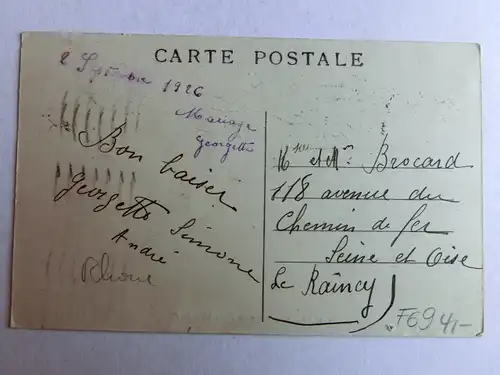 CARTE POSTALE
2 Septembre 1926
Mariage
Georgette
Bon baiser
Georgette Simone
André
Rhône
Mr et Mme Brocard
118 avenue du
Chemin de fer
Seine et Oise
Le Raincy
F69 4,-